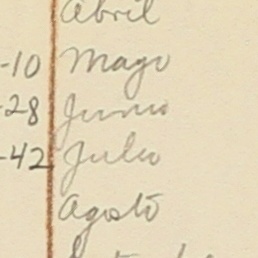 Abril
-10 Mayo
-28 Junio
-42 Julio
Agosto